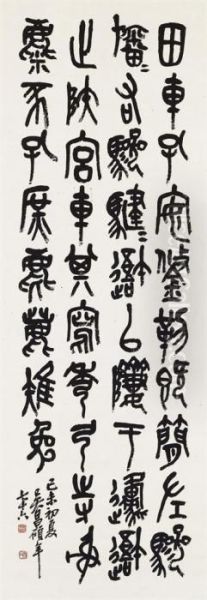 田車孔安鋚勒既簡左驂
旛〻右驂騝〻避以隮于邍避
止陝宮車其寫秀弓寺射
麋豕孔庶麀鹿雉兔
己未初夏
吳昌碩年
七十六